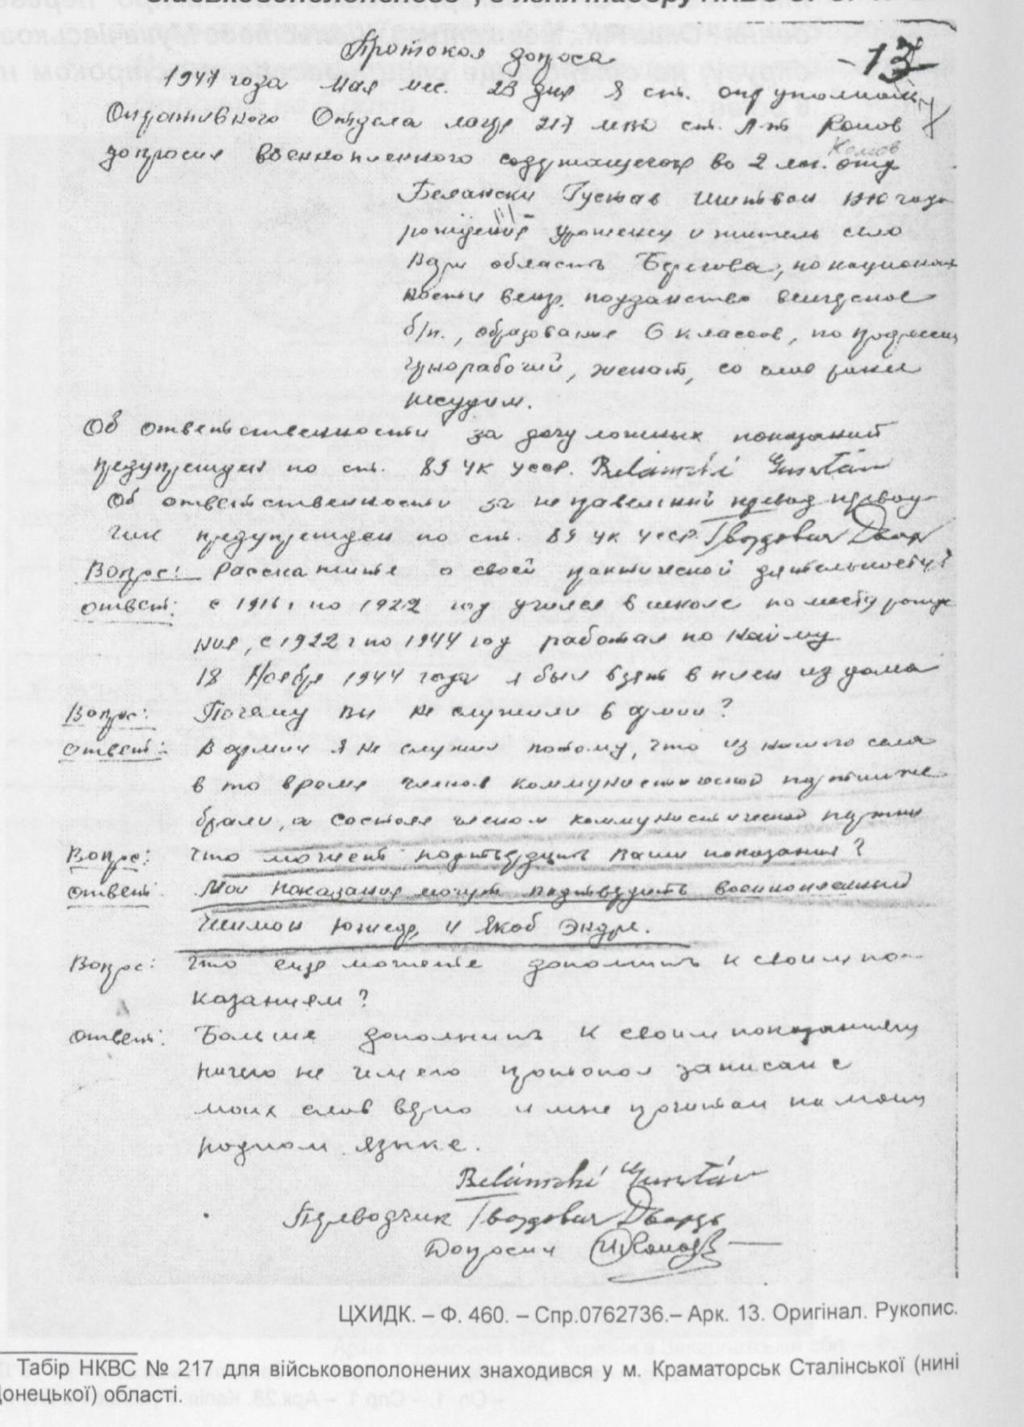 Протокол допроса
-13
1947 года мая мес. 23 дня Я ст. опруполномоч
Оперативного Отдела лагр 217 МВД ст. л-т Комов
Комов
допросил военнопленного содержащегося во 2 лаг. отд
Белански Густав Иштван 1910 года
рождения уроженец и житель село
Вари область Берегова, по национал
ности венгр, подданство венгерское
б/п., образование 6 классов, по профессии
чернорабочий, женат, со слов ранее
несудим.
Об ответственности за дачу ложных показаний
предупрежден по ст. 89 УК УССР. Belánski Gusztáv
Об ответственности за неправельный превод превод-
чик предупрежден по ст. 89 УК УССР.
Вопрос: Расскажите о своей практической деятельности?
Ответ: с 1916 г по 1922 год учился в школе по месту рожде
ния, с 1922 г по 1944 год работал по найму
18 Ноября 1944 года я был взят в плен из дома
Вопрос: Почему вы не служили в армии?
Ответ: В армии я не служил потому, что из нашего села
в то время членов коммунистической партии не
брали, а состоял членом коммунистической партии
Вопрос: Что может подтвердить Ваши показания?
Ответ: Мои показания могут подтвердить военнопленный
и Якоб Эндре.
Вопрос: Что еще можете дополнить к своим по-
казаниям?
Ответ: Больше дополнить к своим показаниям
ничего не имею протокол записан с
моих слов верно и мне прочитан на моем
родном языке.
Belánski Gusztáv
Переводчик
Допросил Комов
ЦХИДК. – Ф. 460. – Спр.0762736.– Арк. 13. Оригінал. Рукопис.
Табір НКВС № 217 для військовополонених знаходився у м. Краматорськ Сталінської (нині
Донецької) області.